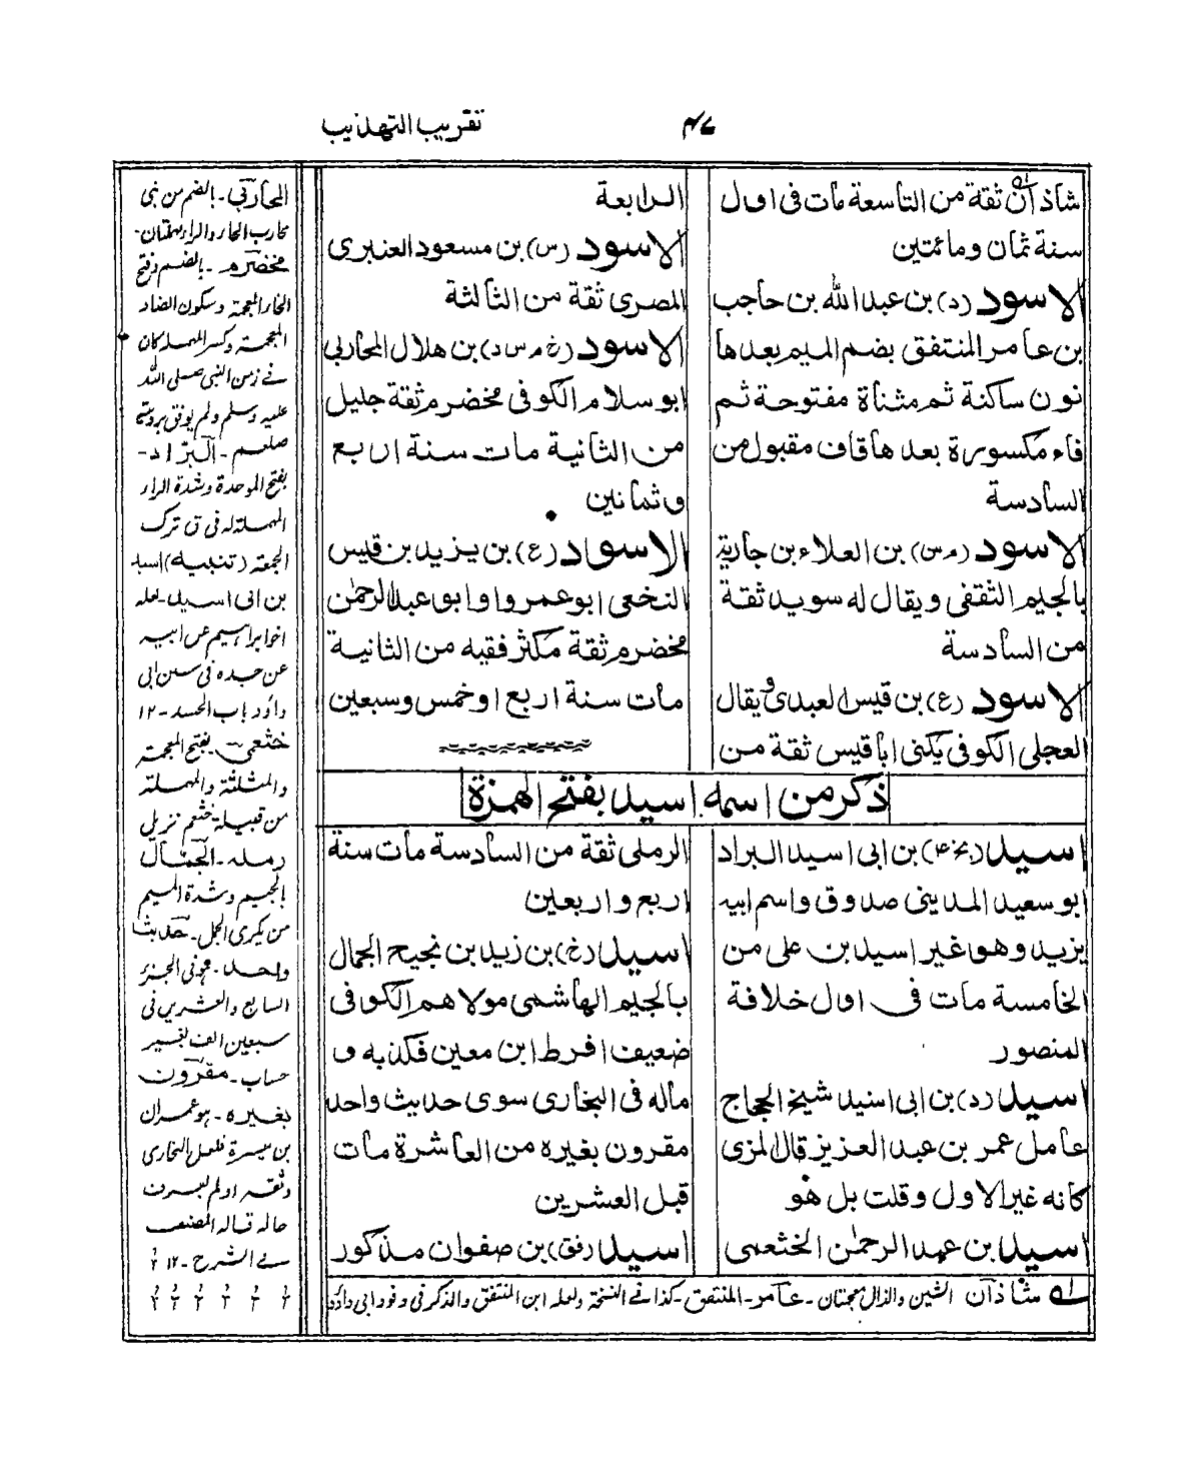 ۴۷
تقريب التهذيب
شاذان ثقة من التاسعة مات فى اول
سنة ثمان ومائتين
الاسود (د) بن عبد الله بن حاجب
بن عامر المنتفق بضم الميم بعدها
نون ساكنة ثم مثناة مفتوحة ثم
فاء مكسورة بعدها قاف مقبول من
السادسة
الاسود (م س) بن العلاء بن جارية
بالجيم الثقفى ويقال له سويد ثقة
من السادسة
الاسود (ع) بن قيس العبدى ويقال
العجلى الكوفى يكنى ابا قيس ثقة من
الرابعة
الاسود (س) بن مسعود العنبرى
المصرى ثقة من الثالثة
الاسود (خ م س د) بن هلال المحاربى
ابو سلام الكوفى مخضرم ثقة جليل
من الثانية مات سنة اربع
وثمانين
الاسود (ع) بن يزيد بن قيس
النخعى ابو عمرو او ابو عبد الرحمن
مخضرم ثقة مكثر فقيه من الثانية
مات سنة اربع او خمس وسبعين
ذكر من اسمه اسيد بفتح الهمزة
اسيد (بخ ۴) بن ابى اسيد البراد
ابو سعيد المدينى صدوق واسم ابيه
يزيد وهو غير اسيد بن على من
الخامسة مات فى اول خلافة
المنصور
اسيد (د) بن ابى اسيد شيخ الحجاج
عامل عمر بن عبد العزيز قال المزى
كانه غير الاول وقلت بل هو
اسيد بن عبد الرحمن الخثعمى
الرملى ثقة من السادسة مات سنة
اربع واربعين
اسيد (خ) بن زيد بن نجيح الجمال
بالجيم الهاشمى مولاهم الكوفى
ضعيف افرط ابن معين فكذبه و
ماله فى البخارى سوى حديث واحد
مقرون بغيره من العاشرة مات
قبل العشرين
اسيد (فق) بن صفوان مذكور
المحاربى ـ بالضم من بنى
محارب الحاء والراء مهملتان ـ
مخضرم ـ بالضم وفتح
الخاء المعجمة وسكون الضاد
المعجمة وكسر المهملة كان
فے زمن النبى صلى الله
عليه وسلم ولم يوفق برويته
صلعم ـ البراد ـ
بفتح الموحدة وشدة الراء
المهملة له فى ق ترك
الجمعة (تنبيه) اسيد
بن ابى اسيد لعله
اخو ابراہيم عن ابيه
عن جده فى سنن ابى
داؤد باب الحسد ـ ١٢
خثعمى ـ بفتح المعجمة
والمثلثة والمهملة
من قبيلة خثعم نزيل
رملہ ـ الجمّال
بالجيم وشدة الميم
من يكرى الجمل ـ حديث
واحد ـ هو فى الجزء
السابع والعشرين فى
سبعين الف بغير
حساب ـ مقرون
بغيره ـ هو عمران
بن ميسرة فلعل البخارى
وثقه او لم يعرف
حاله قاله المصنف
فے الشرح ـ ١٢
له شاذان الشين والذال معجمتان ـ عامر ـ المنتفق ـ كذا فے النسخة ولعله ابن المنتفق والذكر فى وفود ابى داؤد